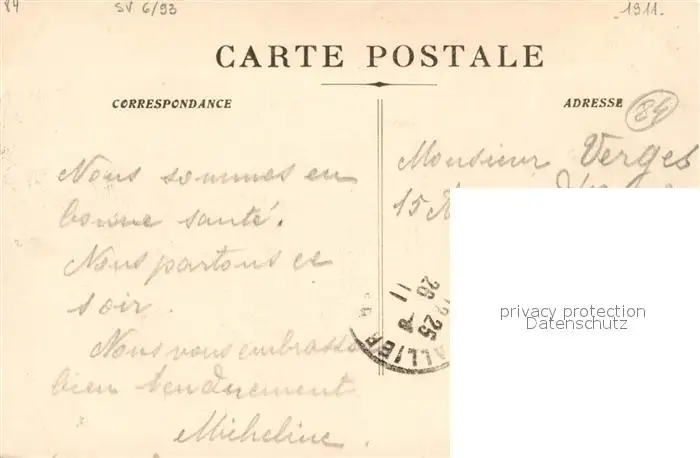 84
SV 6/93
1911.
CARTE POSTALE
CORRESPONDANCE
ADRESSE
84
Monsieur Verges
15
Nous sommes en
bonne santé.
Nous partons ce
soir.
Nous vous embrassons
bien tendrement
Micheline.
25
28
11
ALLIER
privacy protection
Datenschutz